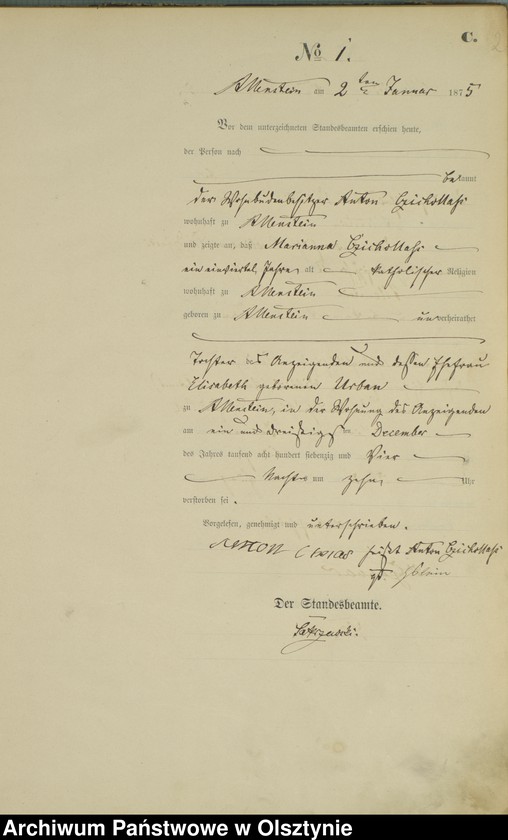 C.
2
No 1.
Allenstein am 2 ten Januar 1875
Vor dem unterzeichneten Standesbeamten erschien heute,
der Person nach
bekannt
der Wohnbudenbesitzer Anton
wohnhaft zu Allenstein
und zeigte an, daß Marianna
ein einviertel Jahre, alt katholischer Religion
wohnhaft zu Allenstein
geboren zu Allenstein unverheirathet
Tochter des Anzeigenden und dessen Ehefrau
Elisabeth geborenen Urban
zu Allenstein, in der Wohnung des Anzeigenden
am ein und dreißigsten December
des Jahres tausend acht hundert siebenzig und Vier
Nachts um zehn Uhr
verstorben sei.
Vorgelesen, genehmigt und unterschrieben.
Anton
Der Standesbeamte.
Archiwum Państwowe w Olsztynie